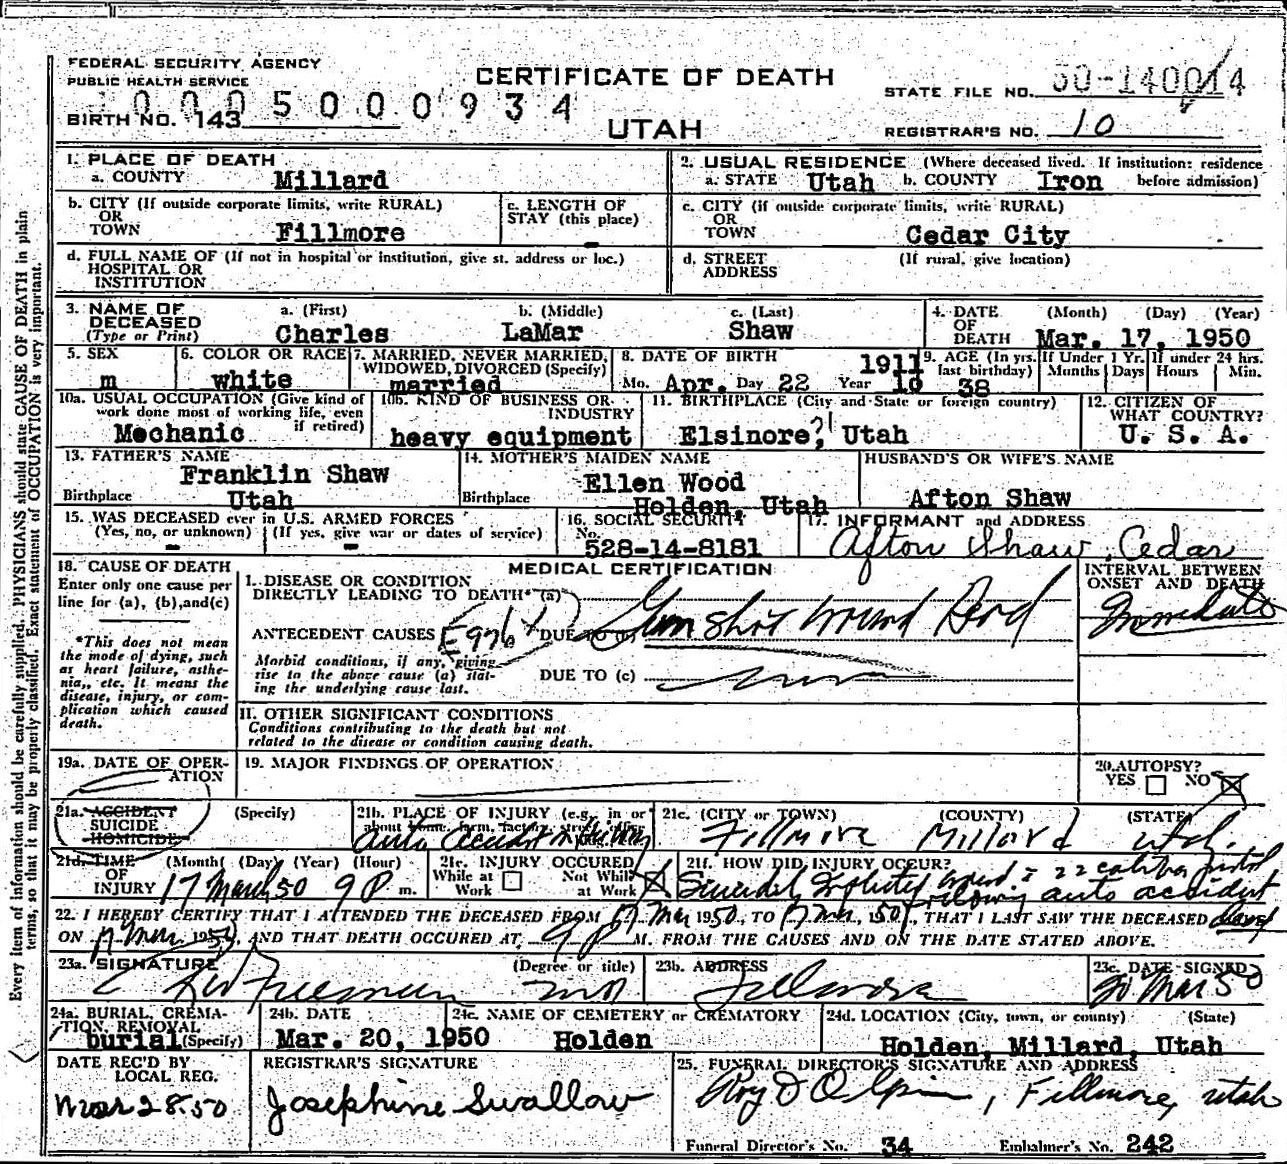 FEDERAL SECURITY AGENCY
PUBLIC HEALTH SERVICE
CERTIFICATE OF DEATH
STATE FILE NO. 50-140014
10005000934
BIRTH NO. 143
UTAH
REGISTRAR'S NO. 10
1. PLACE OF DEATH
a. COUNTY Millard
2. USUAL RESIDENCE (Where deceased lived. If institution: residence before admission)
a. STATE Utah b. COUNTY Iron
b. CITY (If outside corporate limits, write RURAL)
OR
TOWN Fillmore
c. LENGTH OF
STAY (this place) -
c. CITY (if outside corporate limits, write RURAL)
OR
TOWN Cedar City
d. FULL NAME OF (If not in hospital or institution, give st. address or loc.)
HOSPITAL OR
INSTITUTION
d. STREET
ADDRESS
(If rural, give location)
3. NAME OF
DECEASED
(Type or Print)
a. (First) b. (Middle) c. (Last)
Charles LaMar Shaw
4. DATE
OF
DEATH
(Month) (Day) (Year)
Mar. 17, 1950
5. SEX
m
6. COLOR OR RACE
white
7. MARRIED, NEVER MARRIED,
WIDOWED, DIVORCED (Specify)
married
8. DATE OF BIRTH 1911
Mo. Apr. Day 22 Year 10
9. AGE (In yrs.
last birthday)
38
If Under 1 Yr.
Months Days
If under 24 hrs.
Hours Min.
10a. USUAL OCCUPATION (Give kind of
work done most of working life, even
if retired)
Mechanic
10b. KIND OF BUSINESS OR
INDUSTRY
heavy equipment
11. BIRTHPLACE (City and State or foreign country)
Elsinore?, Utah
12. CITIZEN OF
WHAT COUNTRY?
U. S. A.
13. FATHER'S NAME
Franklin Shaw
Birthplace Utah
14. MOTHER'S MAIDEN NAME
Ellen Wood
Birthplace Holden, Utah
HUSBAND'S OR WIFE'S NAME
Afton Shaw
15. WAS DECEASED ever in U.S. ARMED FORCES
(Yes, no, or unknown) (If yes, give war or dates of service)
- -
16. SOCIAL SECURITY
No.
528-14-8181
17. INFORMANT and ADDRESS
Afton Shaw, Cedar
18. CAUSE OF DEATH
Enter only one cause per
line for (a), (b), and (c)
*This does not mean
the mode of dying, such
as heart failure, asthe-
nia, etc. It means the
disease, injury, or com-
plication which caused
death.
MEDICAL CERTIFICATION
INTERVAL BETWEEN
ONSET AND DEATH
Immediate
I. DISEASE OR CONDITION
DIRECTLY LEADING TO DEATH* (a)
Gun shot wound Head
ANTECEDENT CAUSES E976X DUE TO
Morbid conditions, if any, giving
rise to the above cause (a) stat-
ing the underlying cause last.
DUE TO (c)
II. OTHER SIGNIFICANT CONDITIONS
Conditions contributing to the death but not
related to the disease or condition causing death.
19a. DATE OF OPER-
ATION
19. MAJOR FINDINGS OF OPERATION
20. AUTOPSY?
YES NO
21a. ACCIDENT
SUICIDE
HOMICIDE
(Specify)
21b. PLACE OF INJURY (e.g., in or
about home, farm, factory, street, office
auto accident
21c. (CITY or TOWN) (COUNTY) (STATE)
Fillmore Millard Utah.
21d. TIME
OF
INJURY
(Month) (Day) (Year) (Hour)
17 March 50 9 P m.
21e. INJURY OCCURED
While at Work Not While at Work
21f. HOW DID INJURY OCCUR?
Suicidal wound 22 caliber pistol
following auto accident
22. I HEREBY CERTIFY THAT I ATTENDED THE DECEASED FROM 17 Mar 1950, TO 17 Mar, 1950, THAT I LAST SAW THE DECEASED alive
ON 17 Mar, 1950, AND THAT DEATH OCCURED AT 9 P M. FROM THE CAUSES AND ON THE DATE STATED ABOVE.
23a. SIGNATURE (Degree or title)
Freeman MD
23b. ADDRESS
Fillmore
23c. DATE SIGNED
20 Mar 50
24a. BURIAL, CREMA-
TION, REMOVAL
(Specify) burial
24b. DATE
Mar. 20, 1950
24c. NAME OF CEMETERY or CREMATORY
Holden
24d. LOCATION (City, town, or county) (State)
Holden, Millard, Utah
DATE REC'D BY
LOCAL REG.
Mar 28.50
REGISTRAR'S SIGNATURE
Josephine Swallow
25. FUNERAL DIRECTOR'S SIGNATURE AND ADDRESS
Roy D Olpin, Fillmore, Utah
Funeral Director's No. 34 Embalmer's No. 242
Every item of information should be carefully supplied. PHYSICIANS should state CAUSE OF DEATH in plain
terms, so that it may be properly classified. Exact statement of OCCUPATION is very important.